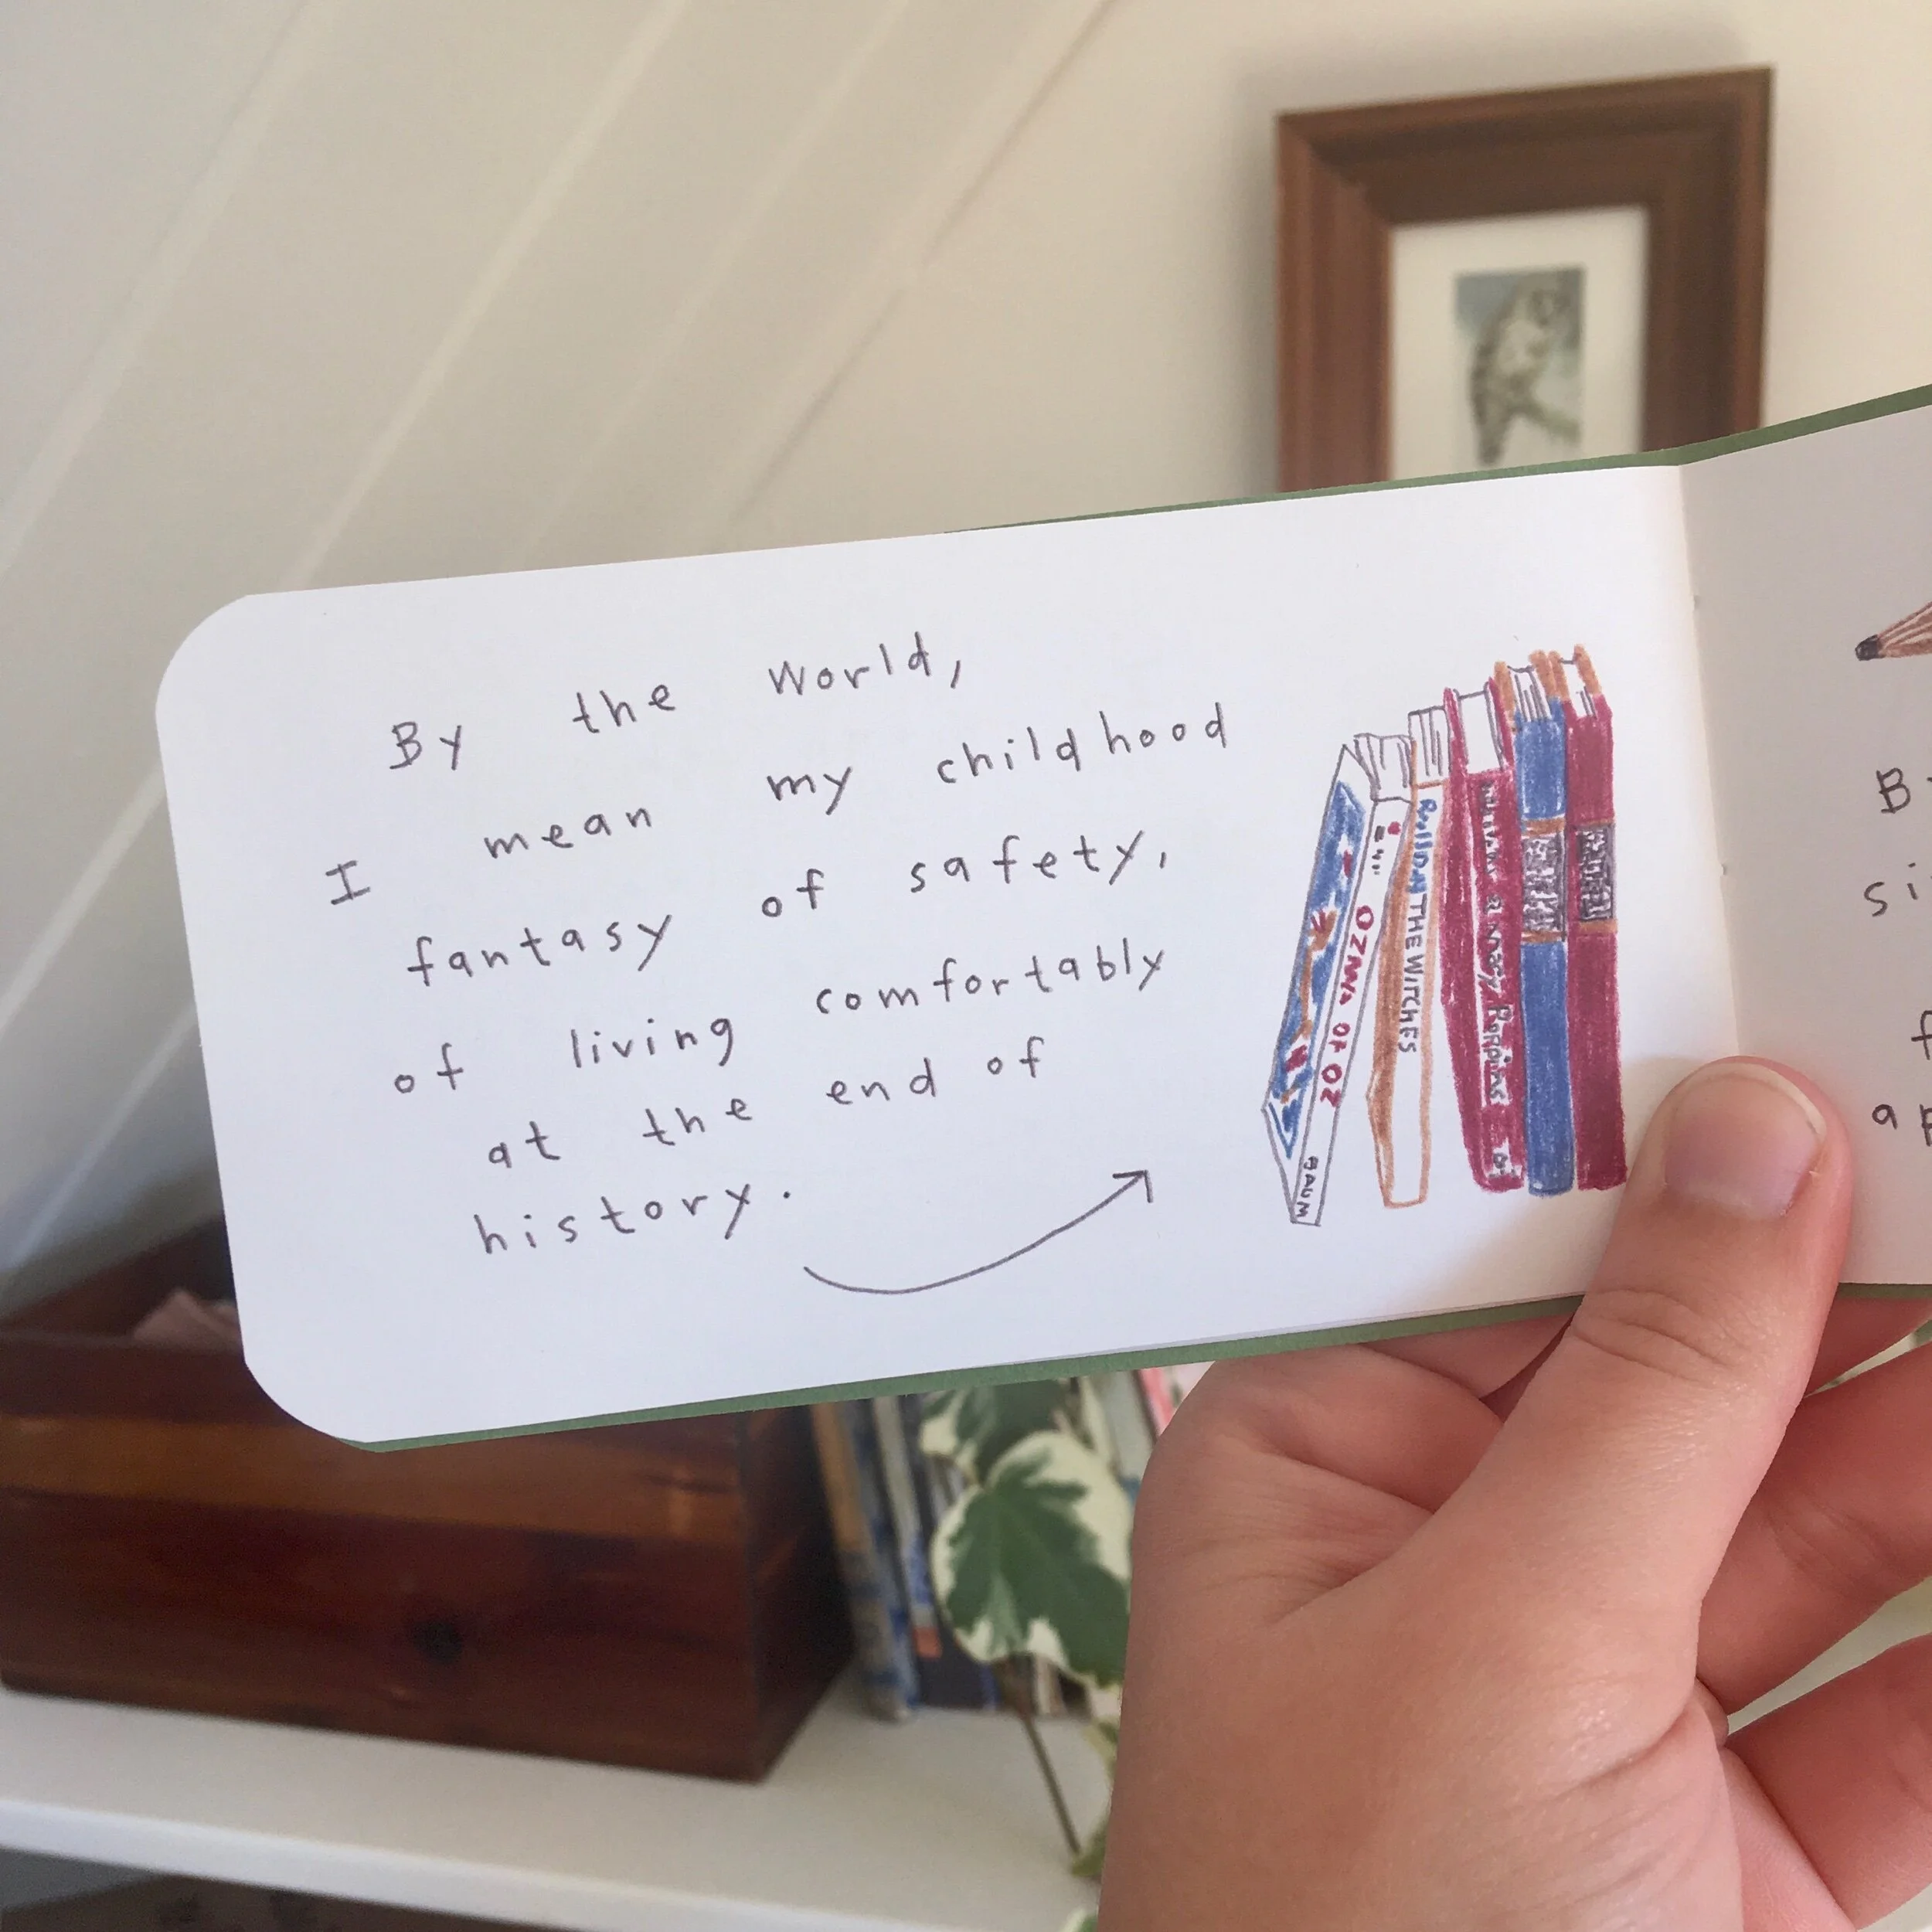 By the world,
I mean my childhood
fantasy of safety,
of living comfortably
at the end of
history.
OZMA OF OZ
BAUM
THE WITCHES
Poppins
B
si
f